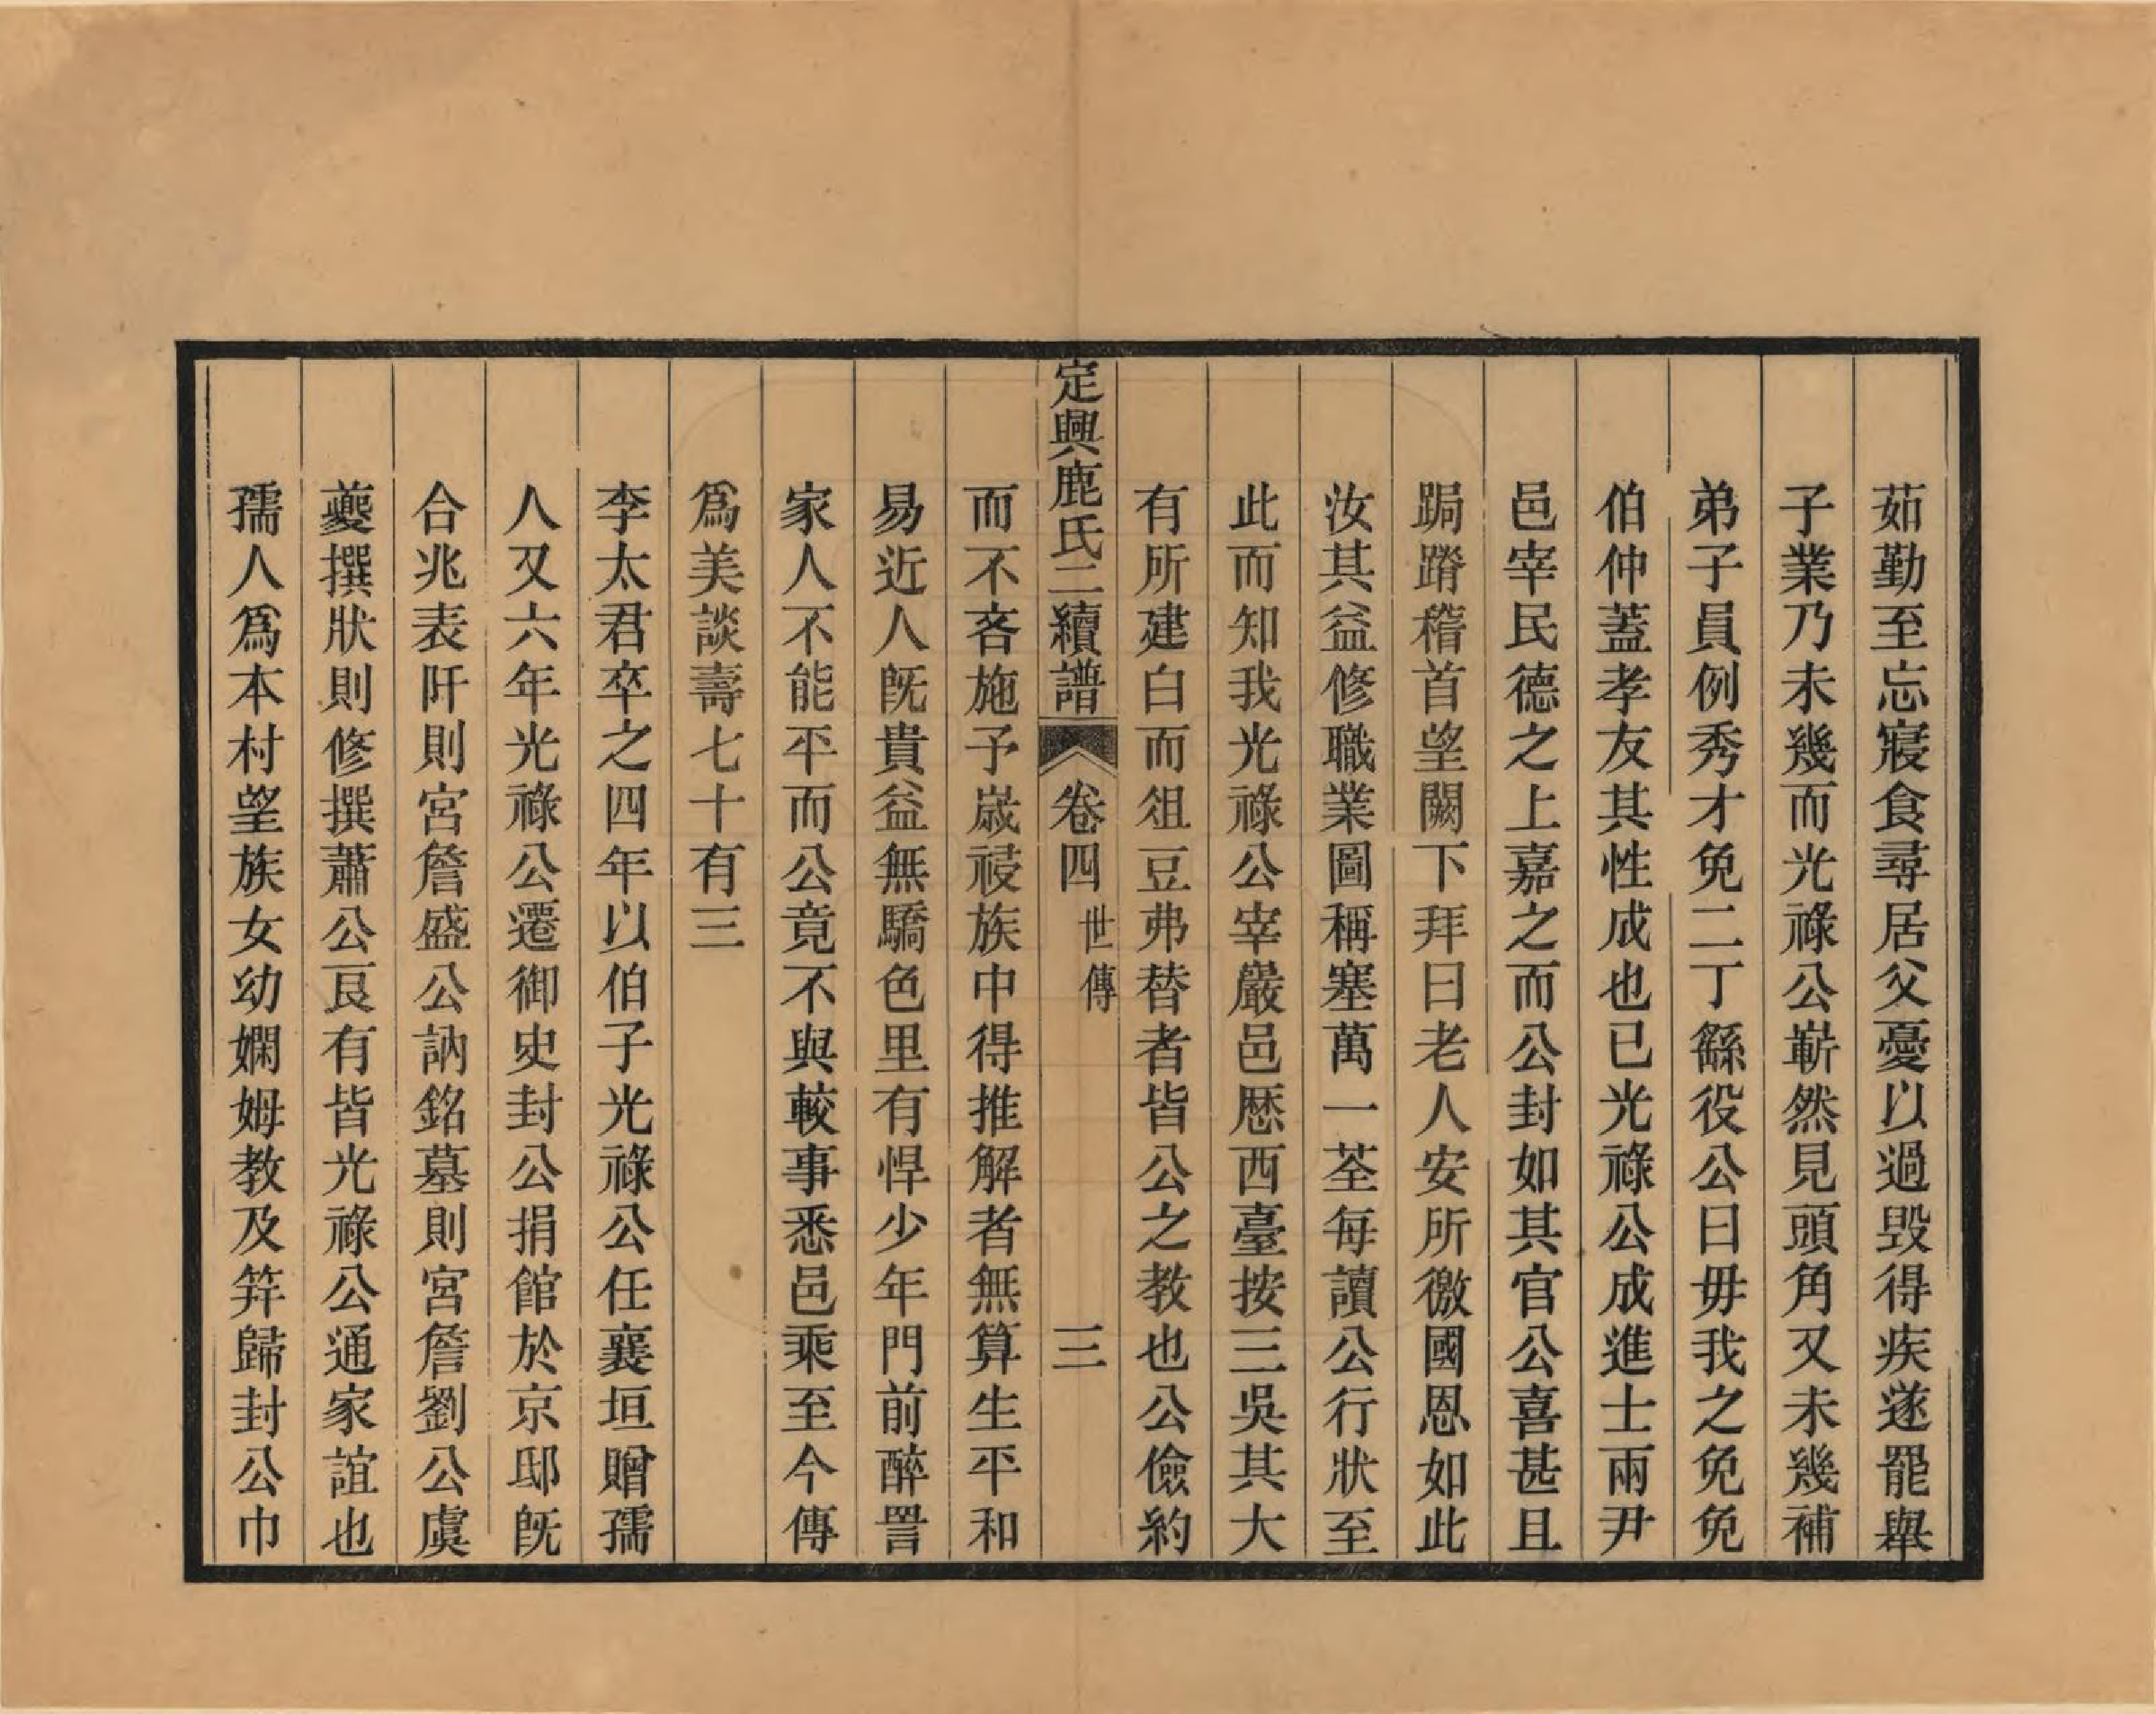 茹勤至忘寢食尋居父憂以過毀得疾遂罷舉
子業乃未幾而光祿公嶄然見頭角又未幾補
弟子員例秀才免二丁繇役公曰毋我之免免
伯仲蓋孝友其性成也已光祿公成進士兩尹
邑宰民德之上嘉之而公封如其官公喜甚且
跼蹐稽首望闕下拜曰老人安所徼國恩如此
汝其益修職業圖稱塞萬一荃每讀公行狀至
此而知我光祿公宰嚴邑歷西臺按三吳其大
有所建白而俎豆弗替者皆公之教也公儉約
定興鹿氏二續譜 卷四 世傳 三
而不吝施予歲祲族中得推解者無算生平和
易近人既貴益無驕色里有悍少年門前醉詈
家人不能平而公竟不與較事悉邑乘至今傳
爲美談壽七十有三
李太君卒之四年以伯子光祿公任襄垣贈孺
人又六年光祿公遷御史封公捐館於京邸既
合兆表阡則宮詹盛公訥銘墓則宮詹劉公虞
夔撰狀則修撰蕭公良有皆光祿公通家誼也
孺人爲本村望族女幼嫻姆教及笄歸封公巾